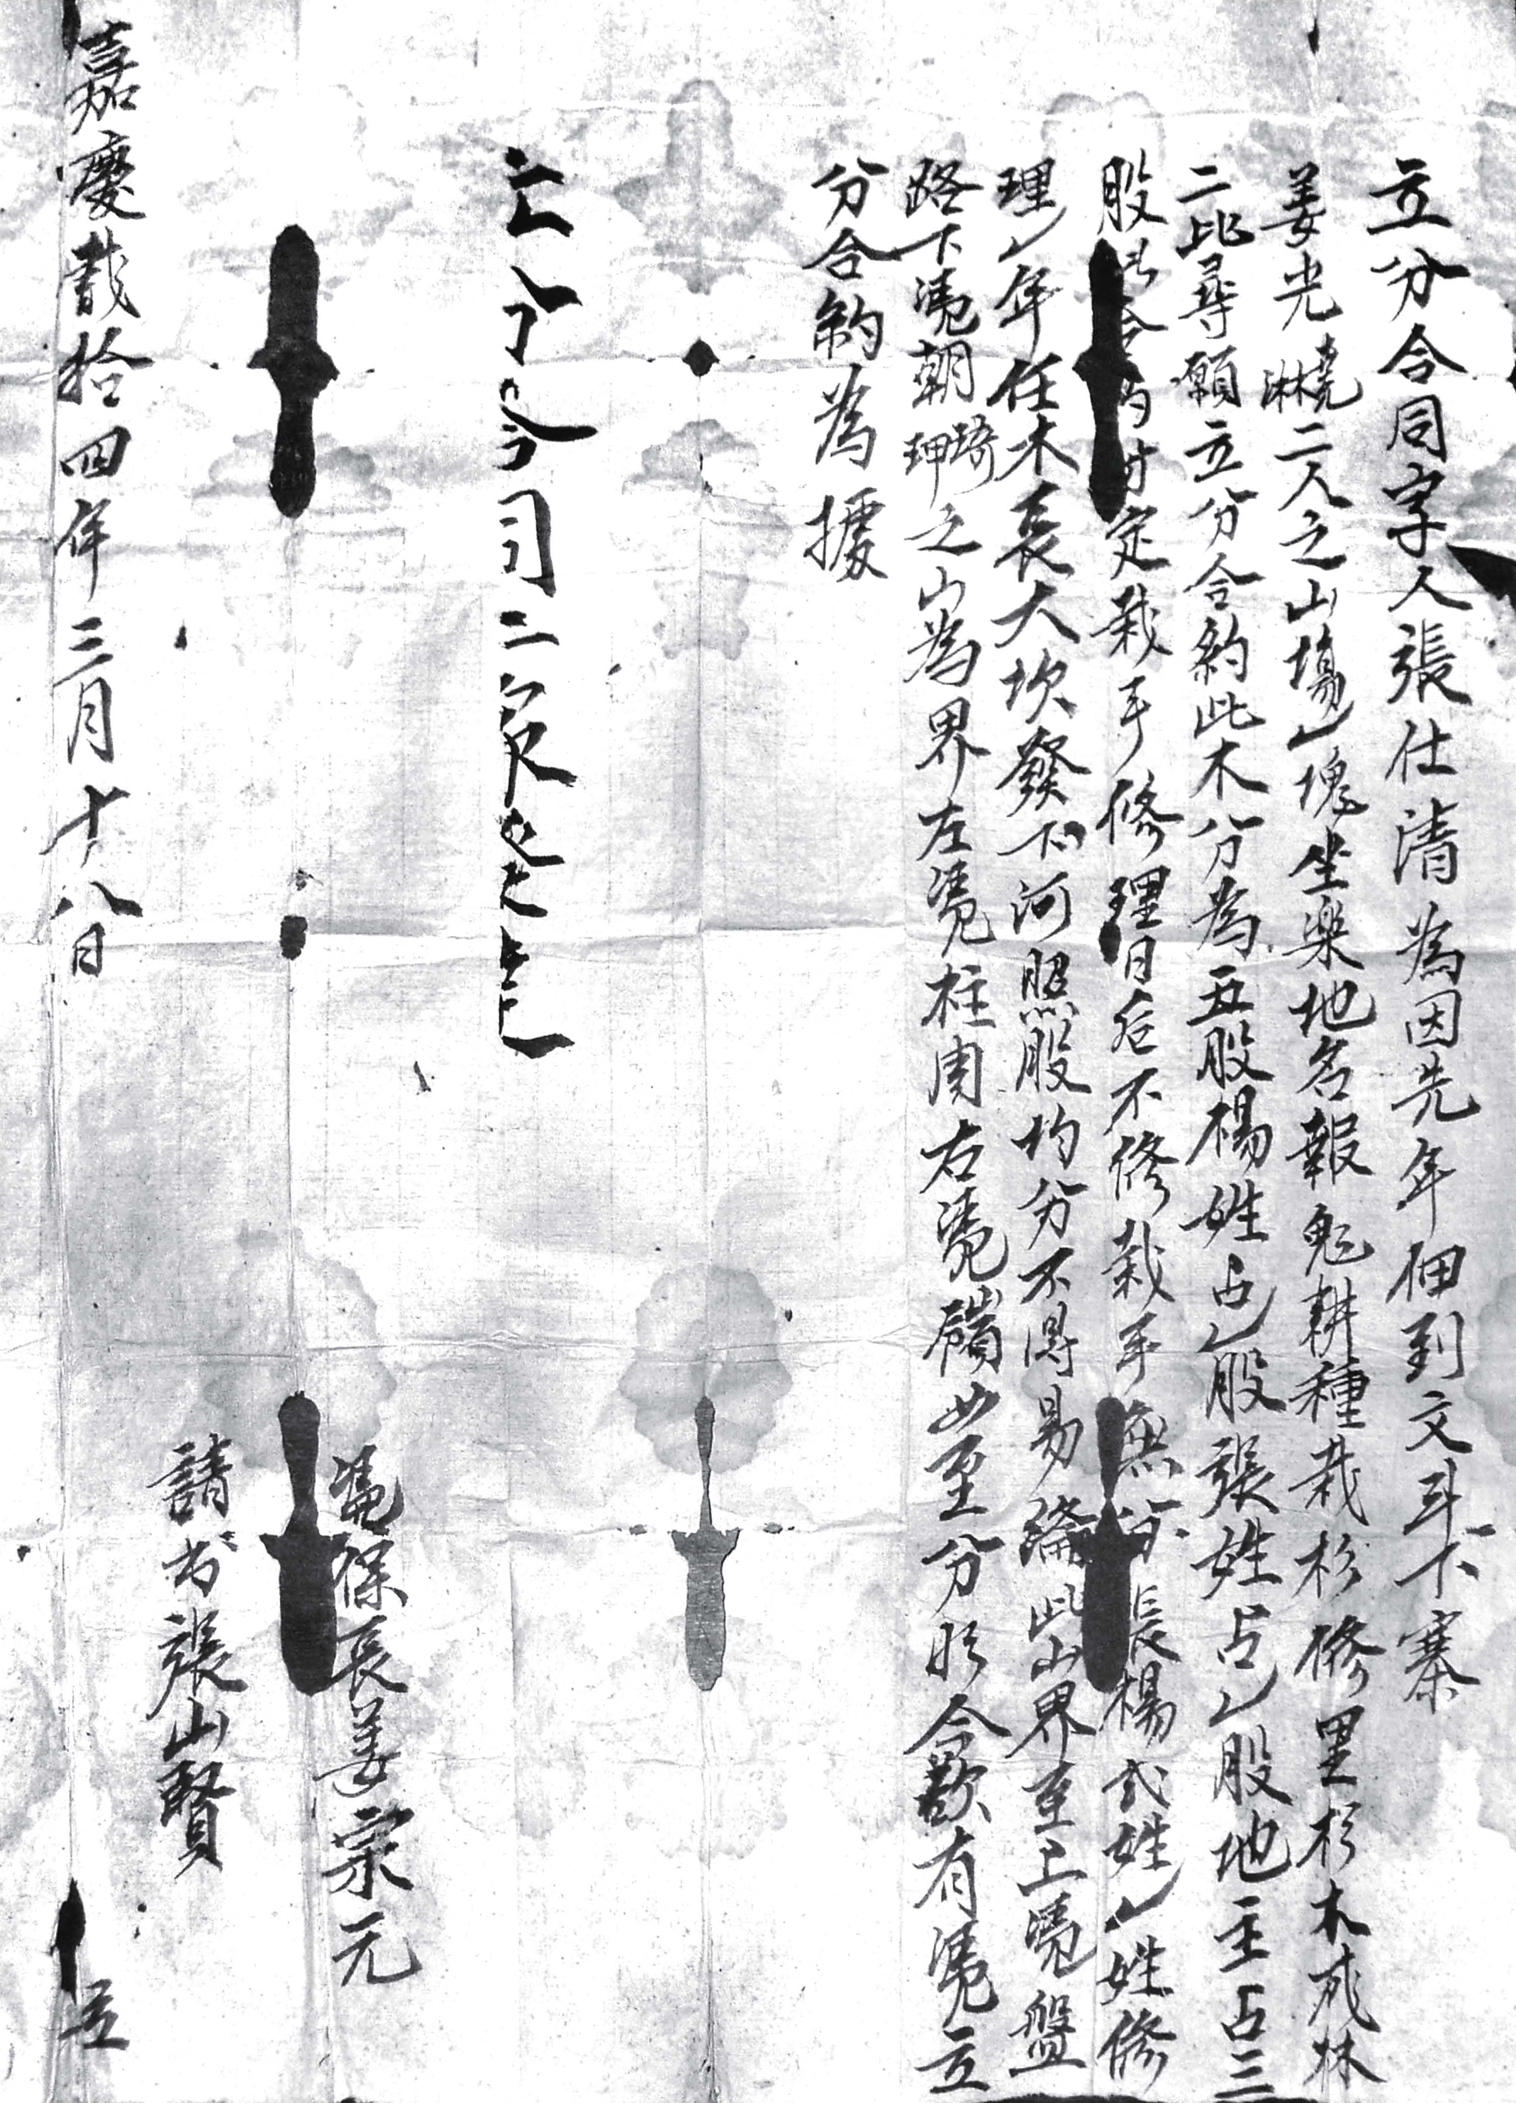 立分合同字人張仕清為因先年佃到文斗下寨
姜光曉淋二人之山塲一塊坐樂地名報𠒇耕種栽杉修里杉木成林
二比尋願立分合約此木分為五股楊姓占一股張姓占一股地主占三
股合約付定栽手修理日后不修栽手無分張楊弍姓一姓修
理一年任木長大坎發下河照股均分不得易論此山界至上慿盤
路下慿朝琦珅之山為界左慿柱周右慿嶺四至分明今欲有慿立
分合約為據
立分合同二家
慿保長姜宗元
請书張山賢
嘉慶貮拾四年三月十八日 立